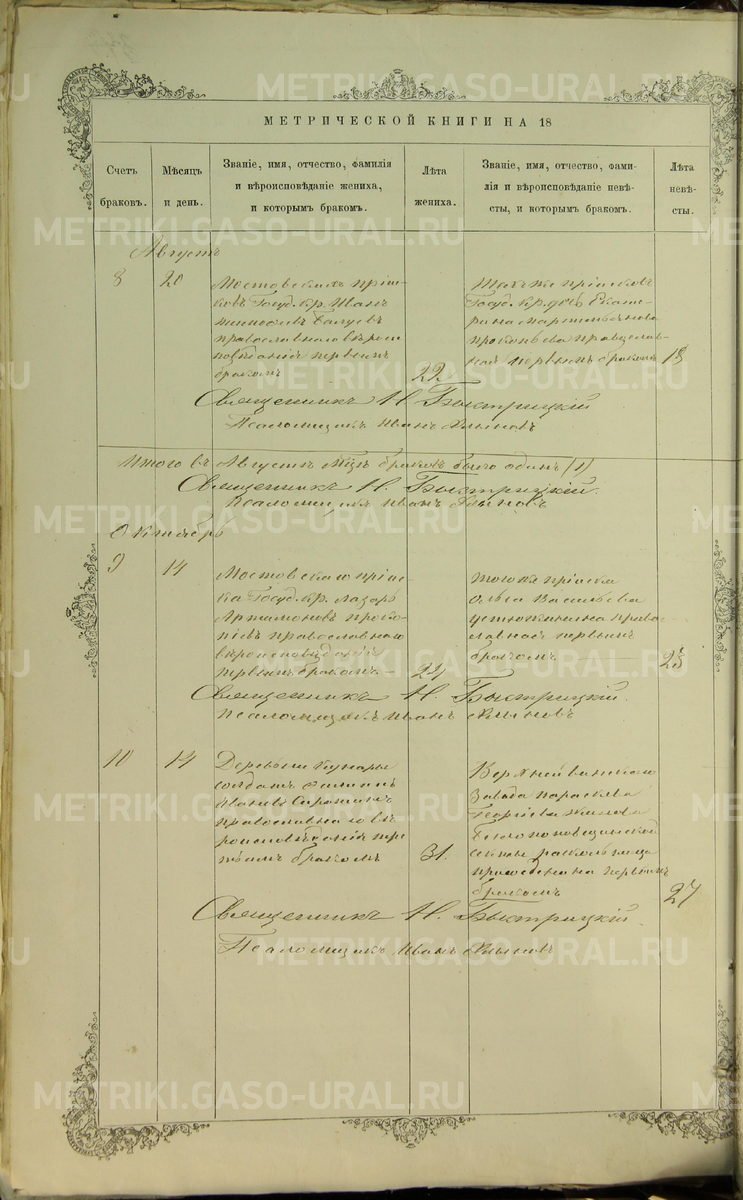 МЕТРИЧЕСКОЙ КНИГИ НА 18
Счетъ браковъ.
Мѣсяцъ и день.
Званіе, имя, отчество, фамилія
и вѣроисповѣданіе жениха,
и которымъ бракомъ.
Лѣта
жениха.
Званіе, имя, отчество, фами-
лія и вѣроисповѣданіе невѣ-
сты, и которымъ бракомъ.
Лѣта
невѣ-
сты.
Августъ
8 20
Мостовскихъ пріис-
ковъ Госуд. Кр. Иванъ
православнаго вѣроис
повѣданія первымъ
бракомъ
22.
Тѣхъ же пріисковъ
Госуд. Кр. дочь Екате-
рина Мартиньянова
Прокопьева православ-
ной первымъ бракомъ
18
Священникъ Н. Быстрицкій
Псаломщикъ Иванъ
Итого въ Августѣ м-цѣ браковъ было одинъ (1)
Священникъ Н. Быстрицкій.
Псаломщикъ Иванъ
Октябрь
9 14
Мостовскаго пріис-
ка Госуд. Кр. Лазарь
Артамоновъ Проко-
піевъ православнаго
вѣроисповѣданія
первымъ бракомъ. —
24
того же пріиска
Ольга Васильева
Устюжанина право-
славная первымъ
бракомъ
23
Священникъ Н. Быстрицкій.
Псаломщикъ Иванъ
10 14
Деревни Кунары
солдатъ
Ивановъ Сиротинъ
православнаго вѣ
роисповѣданія тре
тьимъ бракомъ
31.
Верхнейвинскаго
Завода Параскева
Георгіева
Безпоповщинской
секты раскольница
на первымъ
бракомъ
27
Священникъ Н. Быстрицкій.
Псаломщикъ Иванъ
METRIKI.GASO-URAL.RU